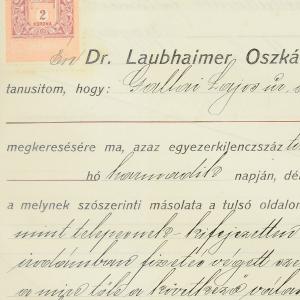 2
KORONA
Én Dr. Laubhaimer Oszká
tanusitom, hogy: Gallai Lajos úr
megkeresésére ma, azaz egyezerkilenczszáz
hó harmadik napján, dé
a melynek szószerinti másolata a tulsó oldalon
mint telepesnek kifejezetten
irodámban fizetés végett
a mire tőle a következő